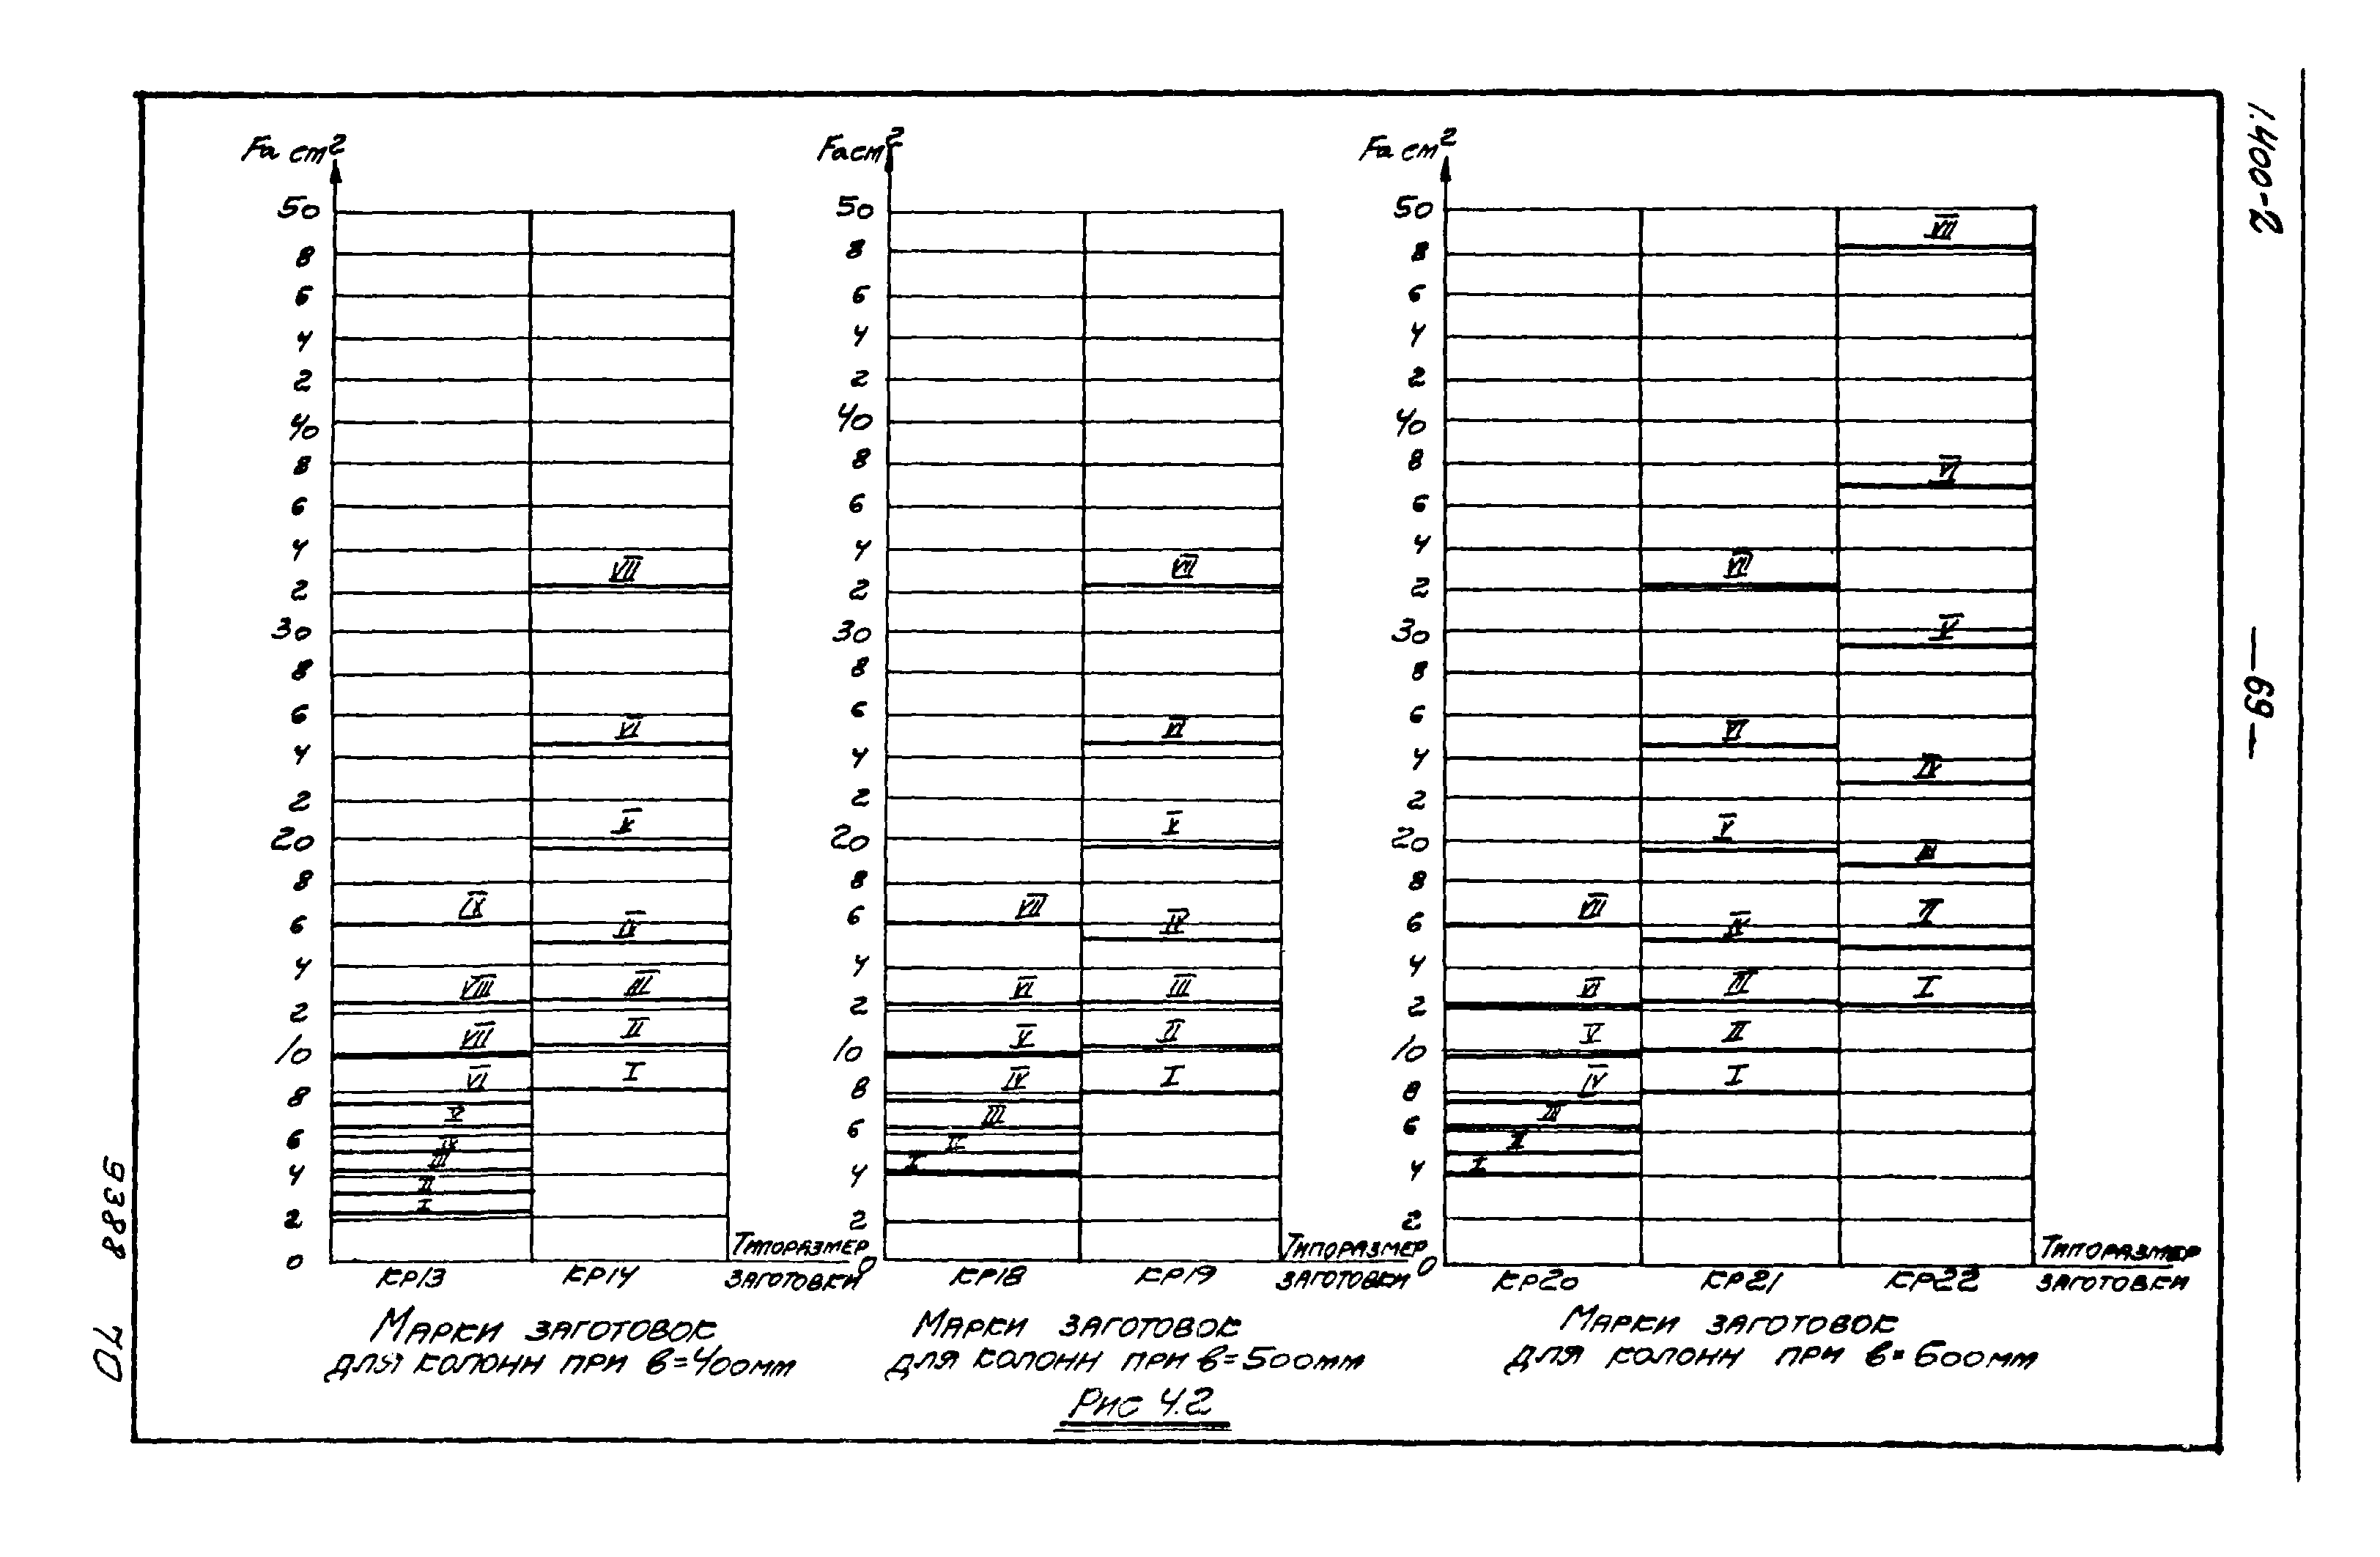 1.400-2
—69—
9388 70
Fa cm²
50
8
6
4
2
40
8
6
4
2
30
8
6
4
2
20
8
6
4
2
10
8
6
4
2
0
IX
VIII
VII
VI
V
IV
III
II
I
VII
VI
V
IV
III
II
I
КР13 КР14
Типоразмер
заготовки
Марки заготовок
для колонн при в=400мм
Fa cm²
50
8
6
4
2
40
8
6
4
2
30
8
6
4
2
20
8
6
4
2
10
8
6
4
2
0
VII
VI
V
IV
III
II
I
VII
VI
V
IV
III
II
I
КР18 КР19
Типоразмер
заготовки
Марки заготовок
для колонн при в=500мм
Fa cm²
50
8
6
4
2
40
8
6
4
2
30
8
6
4
2
20
8
6
4
2
10
8
6
4
2
0
VII
VI
V
IV
III
II
I
VII
VI
V
IV
III
II
I
VII
VI
V
IV
III
II
I
КР20 КР21 КР22
Типоразмер
заготовки
Марки заготовок
для колонн при в=600мм
Рис 4.2